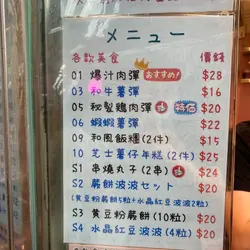 メニュー
各款美食 價錢
01 爆汁肉彈 おすすめ! $28
03 和牛薯彈 $16
05 秘製鷄肉彈 特価 $20
06 蝦蝦薯彈 $22
09 和風飯糰(2件) $15
10 芝士薯仔年糕(2件) $25
S1 串燒丸子(2串) $24
S2 蕨餅波波セット $20
(黄豆粉蕨餅5粒+水晶紅豆波波2粒)
S3 黄豆粉蕨餅(10粒) $20
S4 水晶紅豆波波(4粒) $20